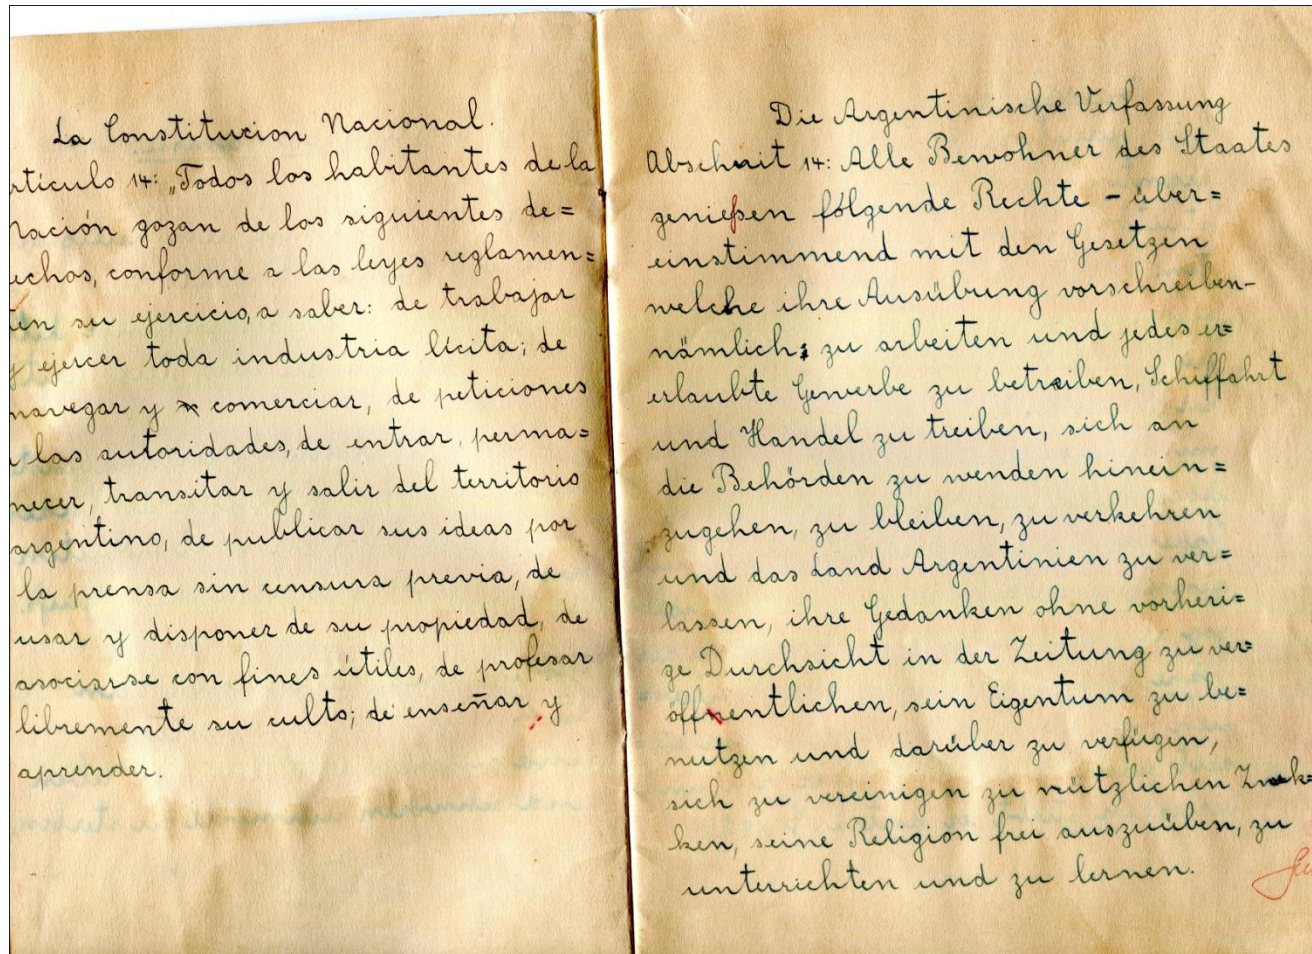 La Constitucion Nacional.
rtículo 14: „Todos los habitantes de la
Nación gozan de los siguientes de=
echos, conforme a las leyes reglamen=
ten su ejercicio, a saber: de trabajar
y ejercer toda industria lícita; de
navegar y comerciar, de peticiones
a las autoridades, de entrar, perma=
necer, transitar y salir del territorio
argentino, de publicar sus ideas por
la prensa sin censura previa, de
usar y disponer de su propiedad, de
asociarse con fines útiles, de profesar
libremente su culto; de enseñar y
aprender.
Die Argentinische Verfassung
Abschnit 14: Alle Bewohner des Staates
genießen folgende Rechte – über=
einstimmend mit den Gesetzen
welche ihre Ausübung vorschreiben–
nämlich: zu arbeiten und jedes er=
erlaubte Gewerbe zu betreiben, Schiffahrt
und Handel zu treiben, sich an
die Behörden zu wenden hinein=
zugehen, zu bleiben, zu verkehren
und das Land Argentinien zu ver=
lassen, ihre Gedanken ohne vorheri=
ge Durchsicht in der Zeitung zu ver=
öffentlichen, sein Eigentum zu be=
nutzen und darüber zu verfügen,
sich zu vereinigen zu nützlichen Zwek=
ken, seine Religion frei auszuüben, zu
unterrichten und zu lernen.